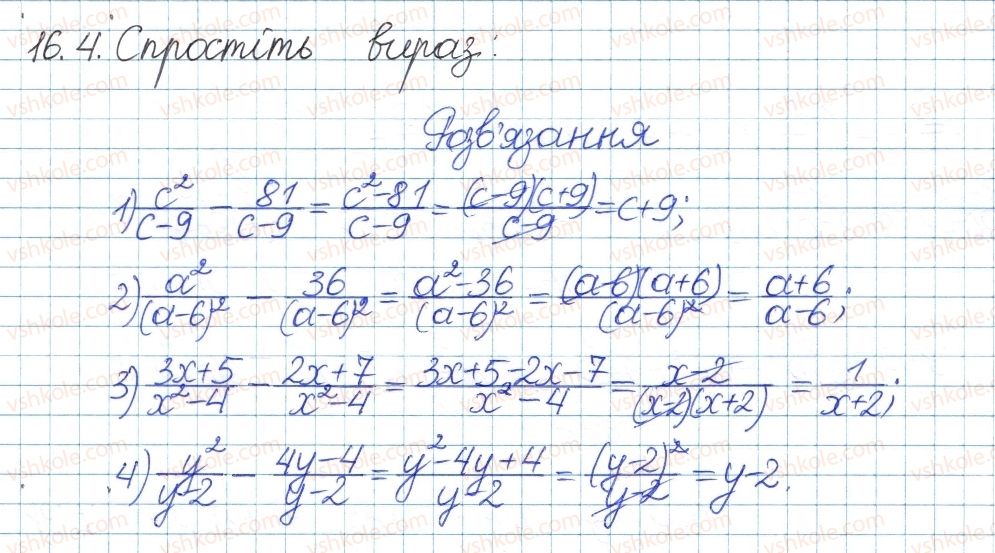 16.4. Спростіть вираз:
Розв'язання
1) c²/(c-9) - 81/(c-9) = (c²-81)/(c-9) = ((c-9)(c+9))/(c-9) = c+9;
2) a²/(a-6)² - 36/(a-6)² = (a²-36)/(a-6)² = ((a-6)(a+6))/(a-6)² = (a+6)/(a-6);
3) (3x+5)/(x²-4) - (2x+7)/(x²-4) = (3x+5-2x-7)/(x²-4) = (x-2)/((x-2)(x+2)) = 1/(x+2);
4) y²/(y-2) - (4y-4)/(y-2) = (y²-4y+4)/(y-2) = (y-2)²/(y-2) = y-2.